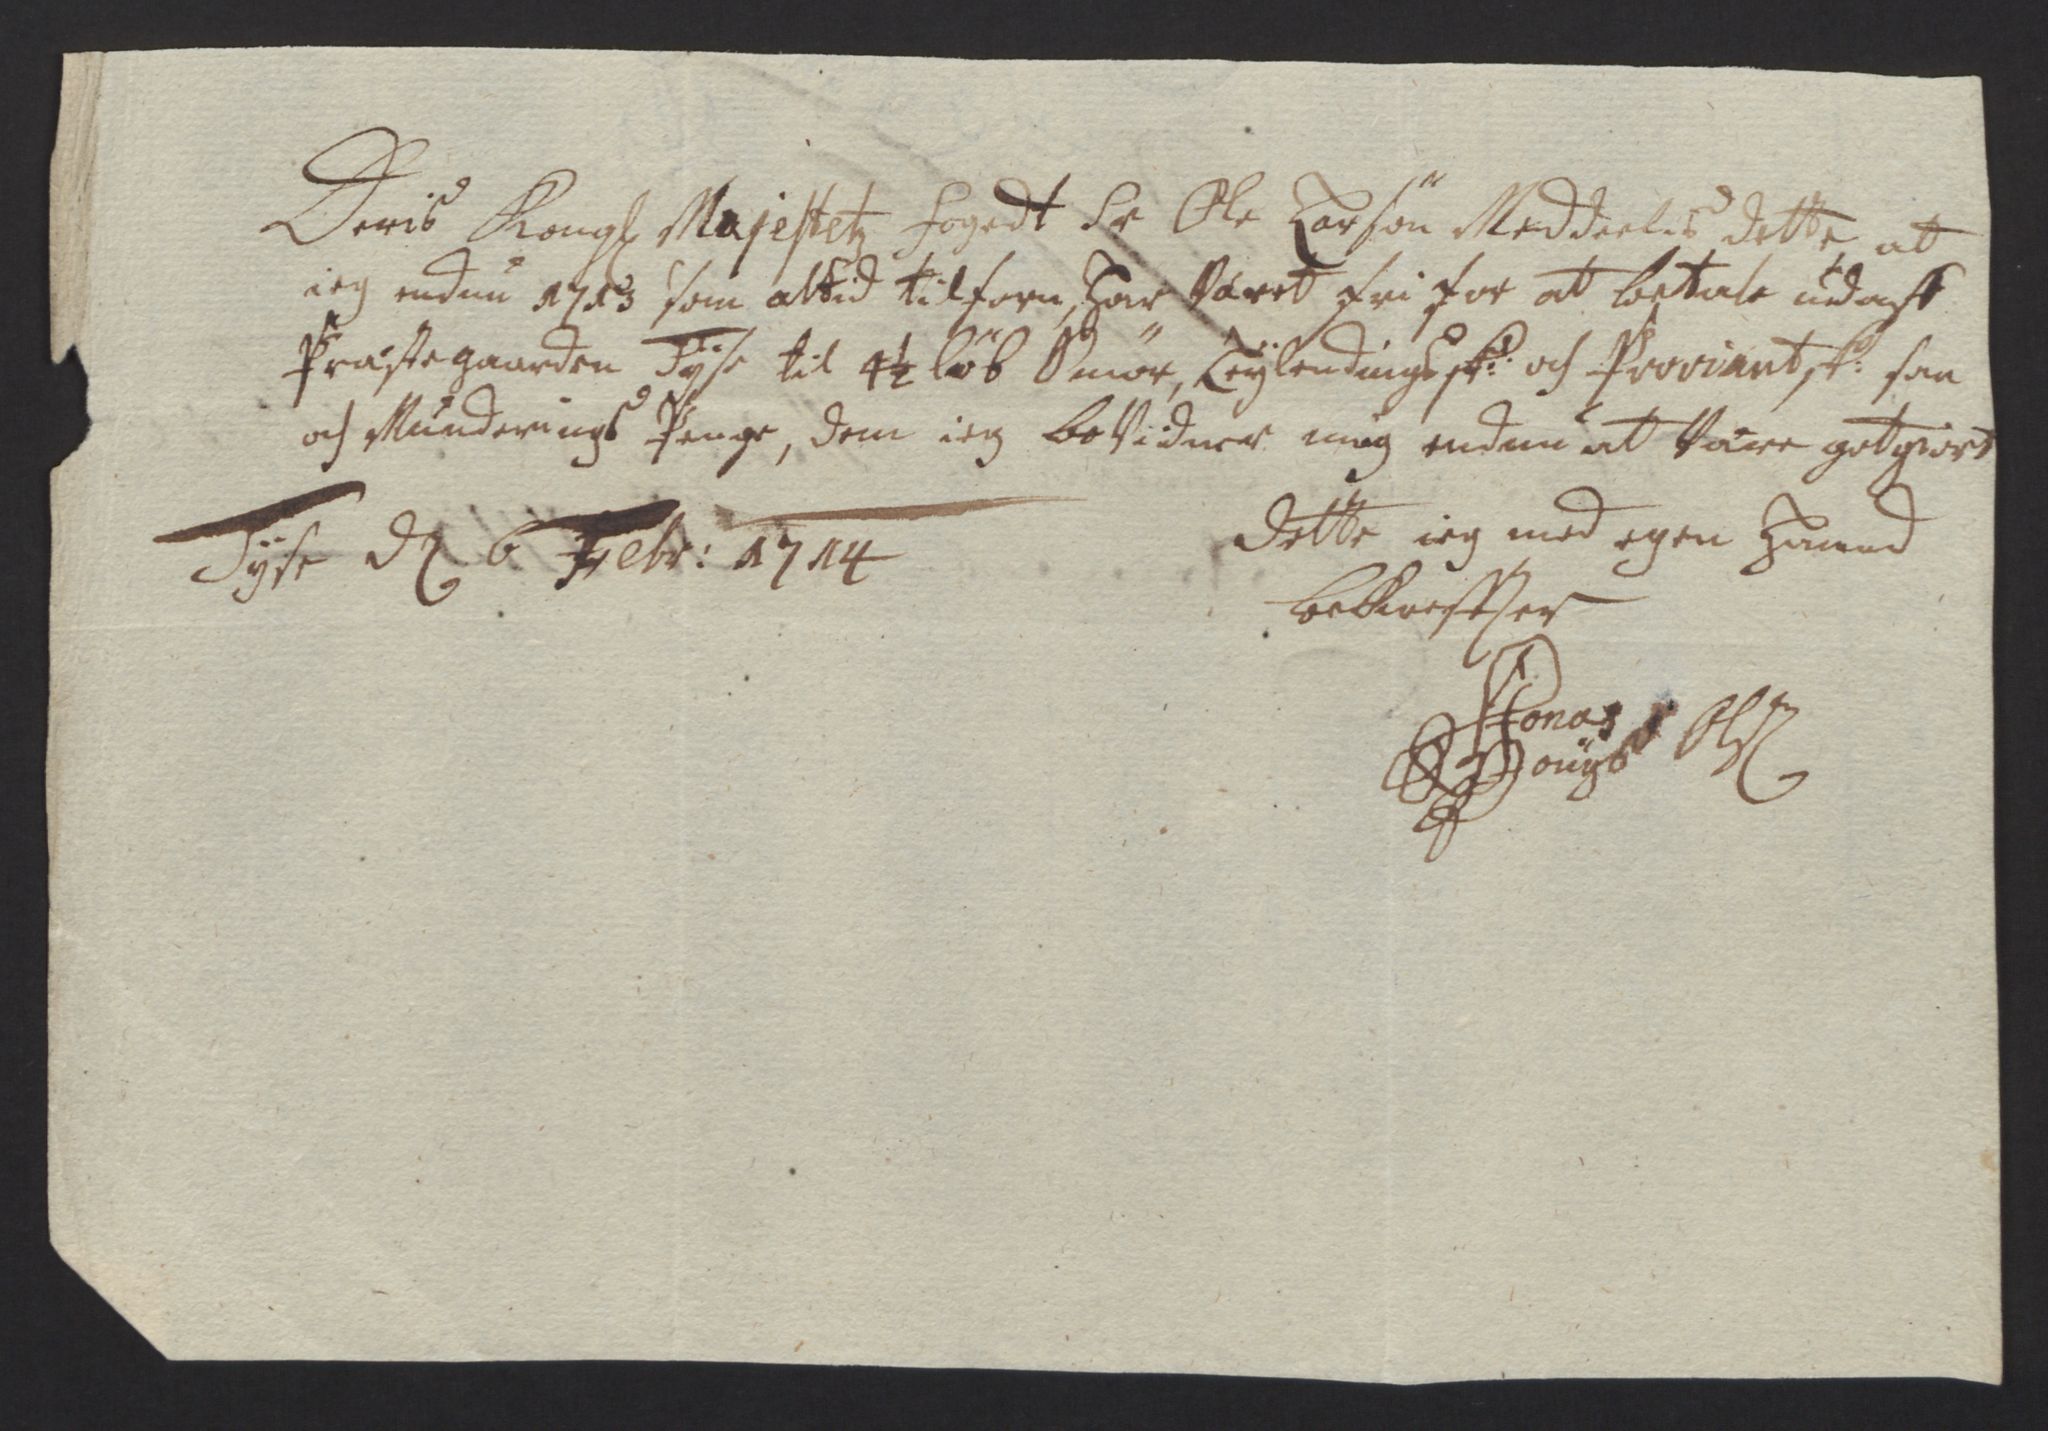 Deris Kongl Majestetz fogedt Sr Ole Larsön Meddeelis dette, at
ieg endnu 1713 som altid tilforn, har Været fri for at betale udaff
Præstegaarden Tÿse til 4½ löb Smör, Leÿlendings sk: och Proviant sk: saa
och Munderings Penge, dem ieg beVidner mig endnu at Være getgiort
Tÿse d 6 Febr: 1714
dette ieg med egen Haand
bekreffter
Jonas